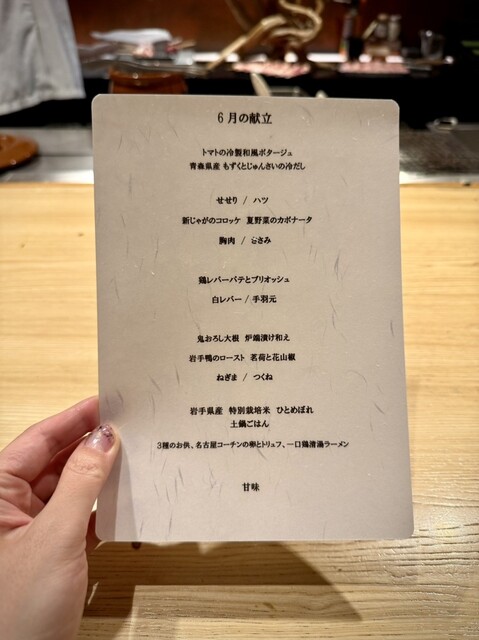 6月の献立
トマトの冷製和風ポタージュ
青森県産 もずくとじゅんさいの冷だし
せせり / ハツ
新じゃがのコロッケ 夏野菜のカポナータ
胸肉 / ささみ
鶏レバーパテとブリオッシュ
白レバー / 手羽元
鬼おろし大根 炉端漬け和え
岩手鴨のロースト 茗荷と花山椒
ねぎま / つくね
岩手県産 特別栽培米 ひとめぼれ
土鍋ごはん
3種のお供、名古屋コーチンの卵とトリュフ、一口鶏清湯ラーメン
甘味